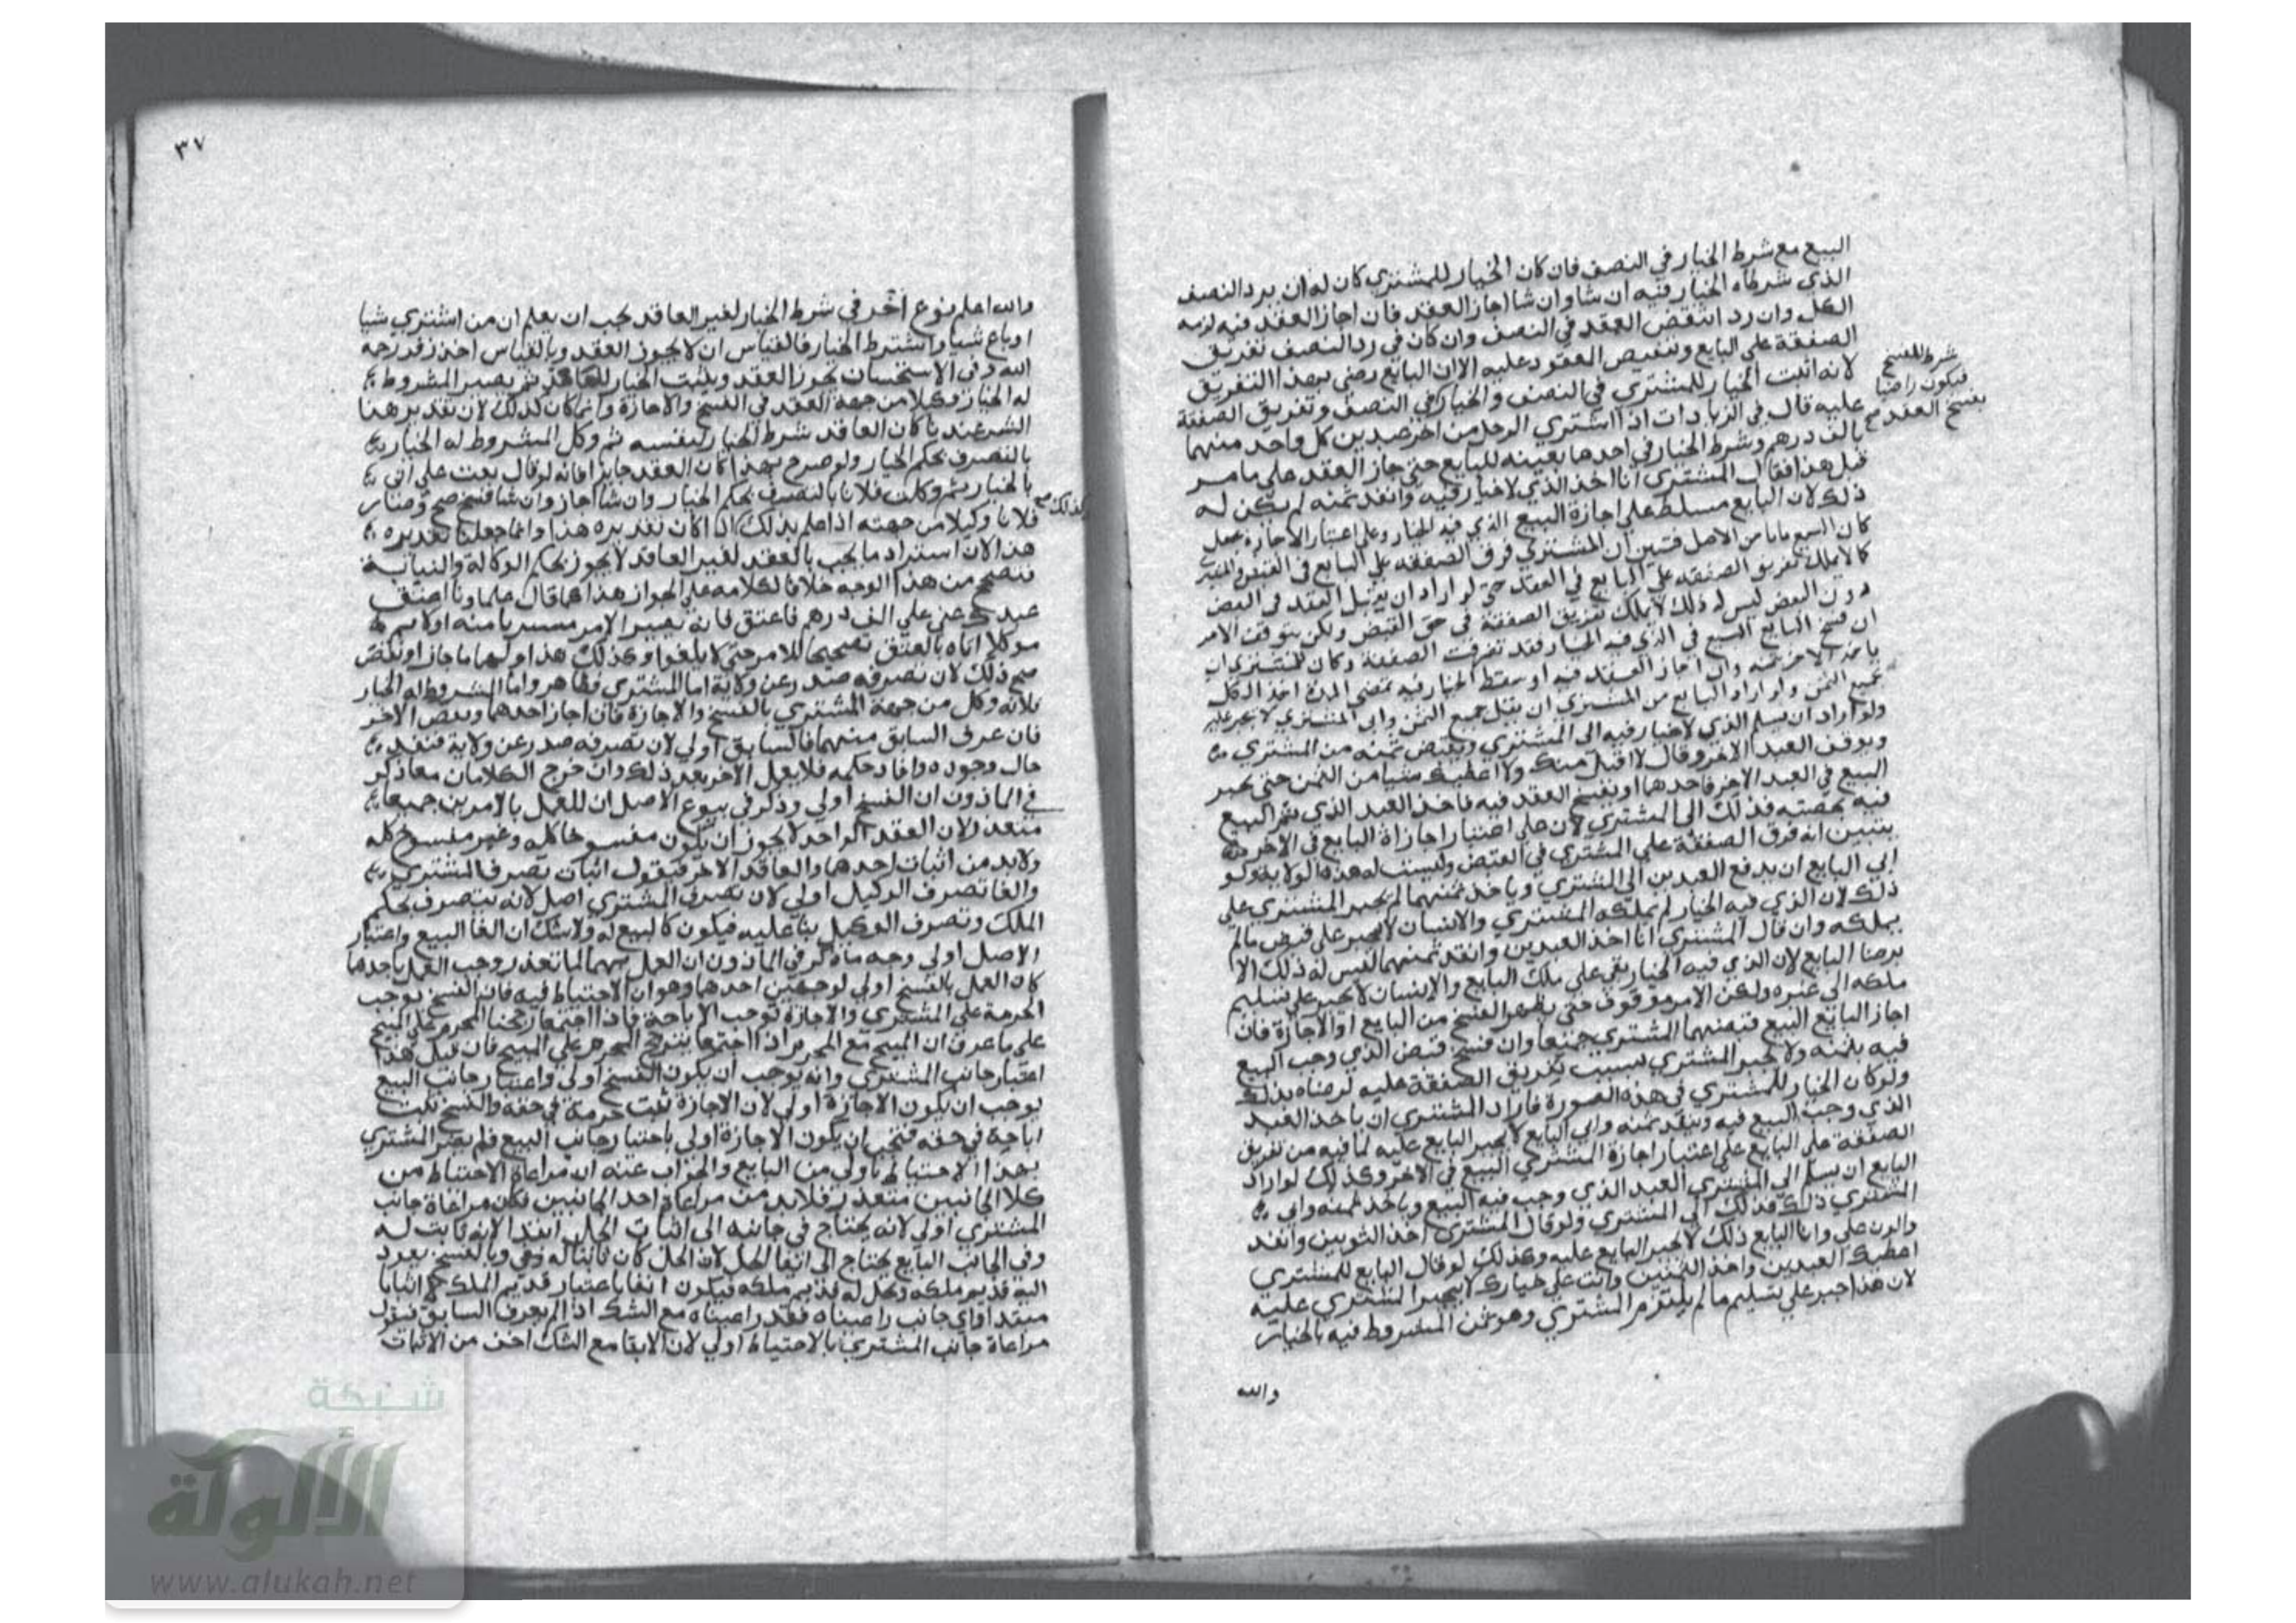 البيع مع شرط الخيار في النصف فان كان الخيار للمشتري كان له ان يرد النصف
الذي شرطاه الخيار فيه ان شا وان شا اجاز العقد فان اجاز العقد فيه لزمه
الكل وان رد انتقض العقد في النصف وان كان في رد النصف تفريق
الصفقة على البايع وتنقيص العقود عليه الا ان البايع رضي بهذا التفريق
لانه اثبت الخيار للمشتري في النصف والخيار في النصف وتفريق الصفقة
شرط للفسخ
فيكون راضيا
بفسخ العقد
عليه قال في الزيادات اذا اشتري الرجل من اخر عبدين كل واحد منهما
بالف درهم وشرط الخيار في احدها بعينه للبايع حتى جاز العقد على ما مر
قبل هذا فقال المشتري انا اخذ الذي لا خيار فيه وانقد ثمنه لم يكن له
ذلك لان البايع مسلط على اجازة البيع الذي فيه الخيار وعلى اعتبار الاجازة
كان البيع باتا من الاصل فتبين ان المشتري فرق الصفقة على البايع في القبض
كما لا يملك تفريق الصفقة على البايع في العقد حتى لو اراد ان يقبل العقد في البعض
دون البعض ليس له ذلك لا يملك تفريق الصفقة في حق القبض ولكن يتوقف الامر
ان فسخ البايع البيع في الذي فيه الخيار فقد تفرقت الصفقة وكان للمشتري ان
ياخذ الاخر بثمنه وان اجاز العقد فيه او سقط الخيار فيه بمضي المدة اخذ الكل
بجميع الثمن ولو اراد البايع من المشتري ان يقبل جميع الثمن وابى المشتري لا يجبر عليه
ولو اراد ان يسلم الذي لا خيار فيه الى المشتري ويقبض ثمنه من المشتري
ويوقف العبد الاخر وقال لا اقبل منك ولا اعطيك شيا من الثمن حتى يجبر
البيع في العبد الاخر فاحدها او يفسخ العقد فيه فاخذ العبد الذي تم البيع
فيه بحصته فذلك الى المشتري لان على اعتبار اجازة البايع في الاخر
يتبين انه فرق الصفقة على المشتري في القبض وليست له هذه الولاية ولو
ابي البايع ان يدفع العبدين الى المشتري وياخذ ثمنهما لم يجبر المشتري على
ذلك لان الذي فيه الخيار لم يملكه المشتري والانسان لا يجبر على قبض مالم
يملكه وان قال المشتري انا اخذ العبدين وانقد ثمنهما ليس له ذلك الا
برضا البايع لان الذي فيه الخيار بقي على ملك البايع والانسان لا يجبر على تسليم
ملكه الى غيره ولكن الامر موقوف حتى يظهر الفسخ من البايع او الاجازة فان
اجاز البايع البيع قبضهما المشتري جميعا وان فسخ قبض الذي وجب البيع
فيه بثمنه ولا يجبر المشتري بسبب تفريق الصفقة عليه لرضاه بذلك
ولو كان الخيار للمشتري في هذه الصورة فاراد المشتري ان ياخذ العبد
الذي وجب البيع فيه وينقد ثمنه وابي البايع لا يجبر البايع عليه لما فيه من تفريق
الصفقة على البايع على اعتبار اجازة المشتري البيع في الاخر وكذلك لو اراد
البايع ان يسلم الى المشتري العبد الذي وجب فيه البيع وياخذ ثمنه وابي
المشتري ذلك فذلك الى المشتري ولو قال المشتري اخذ الثوبين وانقد
وابا البايع ذلك لا يجبر البايع عليه وكذلك لو قال البايع للمشتري
اعطيك العبدين واخذ الثمنين وانت على خيارك لا يجبر المشتري عليه
لان هذا جبر على تسليم مالم يلتزم المشتري وهو ثمن المشروط فيه بالخيار
والله
٣٧
والله اعلم نوع آخر في شرط الخيار لغير العاقد يجب ان يعلم ان من اشتري شيا
او باع شيا واشترط الخيار فالقياس ان لا يجوز العقد وبالقياس اخذ زفر رحمه
الله وفي الاستحسان يجوز العقد ويثبت الخيار للعاقد ثم يصير المشروط
له الخيار وكيلا من جهة العقد في الفسخ والاجازة وانما كان كذلك لان تقدير هذا
الشرط عندنا كان العاقد شرط الخيار لنفسه ثم وكل المشروط له الخيار
بالتصرف بحكم الخيار ولو صرح بهذا كان العقد جايزا فانه لو قال بعت على اني
بالخيار ثم وكلت فلانا بالتصرف بحكم الخيار وان شا اجاز وان شا فسخ صح وصار
كذلك
فلانا وكيلا من جهته اذا علم بذلك اذا كان تقديره هذا وانما جعلنا تقديره
هذا لان استبداد ما يجب بالعقد لغير العاقد لا يجوز بحكم الوكالة والنيابة
فيصح من هذا الوجه خلافا لكلامه على الجواز هذا كما قال علماونا اعتق
عبدك عني على الف درهم فاعتق فانه يصير الامر مشتريا منه اولا ثم
موكلا اياه بالعتق تصحيحا للامر حتى لا يلغوا وكذلك هذا وايهما جاز او نقض
صح ذلك لان تصرفه صدر عن ولاية اما المشتري فظاهر واما المشروط له الخيار
فلانه وكل من جهة المشتري بالفسخ والاجازة فان اجاز احدهما ونقض الاخر
فان عرف السابق منهما فالسابق اولي لان تصرفه صدر عن ولاية فنفذ
حال وجوده وافاد حكمه فلا يعمل الاخر بعد ذلك وان خرج الكلامان معا ذكر
في الماذون ان الفسخ اولي وذكر في بيوع الاصل ان للعمل بالامرين جميعا
متعذر لان العقد الواحد لا يجوز ان يكون مفسوخا كله وغير مفسوخ كله
ولا بد من اثبات احدهما والعاقد الاخر فيقول اثبات تصرف المشتري
والغا تصرف الوكيل اولي لان تصرف المشتري اصل لانه يتصرف بحكم
الملك وتصرف الوكيل بنا عليه فيكون كالبيع له ولا شك ان الغا البيع واعتبار
الاصل اولي وجه ما ذكر في الماذون ان العمل بهما لما تعذر وجب العمل باحدهما
كان العمل بالفسخ اولي لوجهين احدهما وهو ان الاحتياط فيه فان الفسخ يوجب
الحرمة على المشتري والاجازة توجب الاباحة فاذا اجتمعا رجحنا المحرم على المبيح
على ما عرف ان المبيح مع المحرم اذا اجتمعا يترجح المحرم على المبيح فان قيل هذا
اعتبار جانب المشتري وانه يوجب ان يكون الفسخ اولي واعتبار جانب البيع
يوجب ان يكون الاجازة اولي لان الاجازة تثبت حرمة في حقه والفسخ يثبت
اباحة في حقه فتجب ان يكون الاجازة اولي باعتبار جانب البيع فلم يصر المشتري
بهذا الاحتياط باولي من البايع والجواب عنه ان مراعاة الاحتياط من
كلا الجانبين متعذر فلا بد من مراعاة احد الجانبين لكن مراعاة جانب
المشتري اولي لانه يحتاج في جانبه الى اثبات الحل ابتدا لانه ثابت له
وفي الجانب البايع يحتاج الى ابقا الحل لان الحل كان ثابتا له وهي وبالفسخ يعود
اليه قديم ملكه ويحل له قديم ملكه فيكون ابقا باعتبار قديم الملك اثباتا
مبتدا فاي جانب راعيناه فقد راعيناه مع الشك اذا لم يعرف السابق فنقول
مراعاة جانب المشتري بالاحتياط اولي لان الابقا مع الشك اخف من الاثبات
شبكة
الألوكة
www.alukah.net